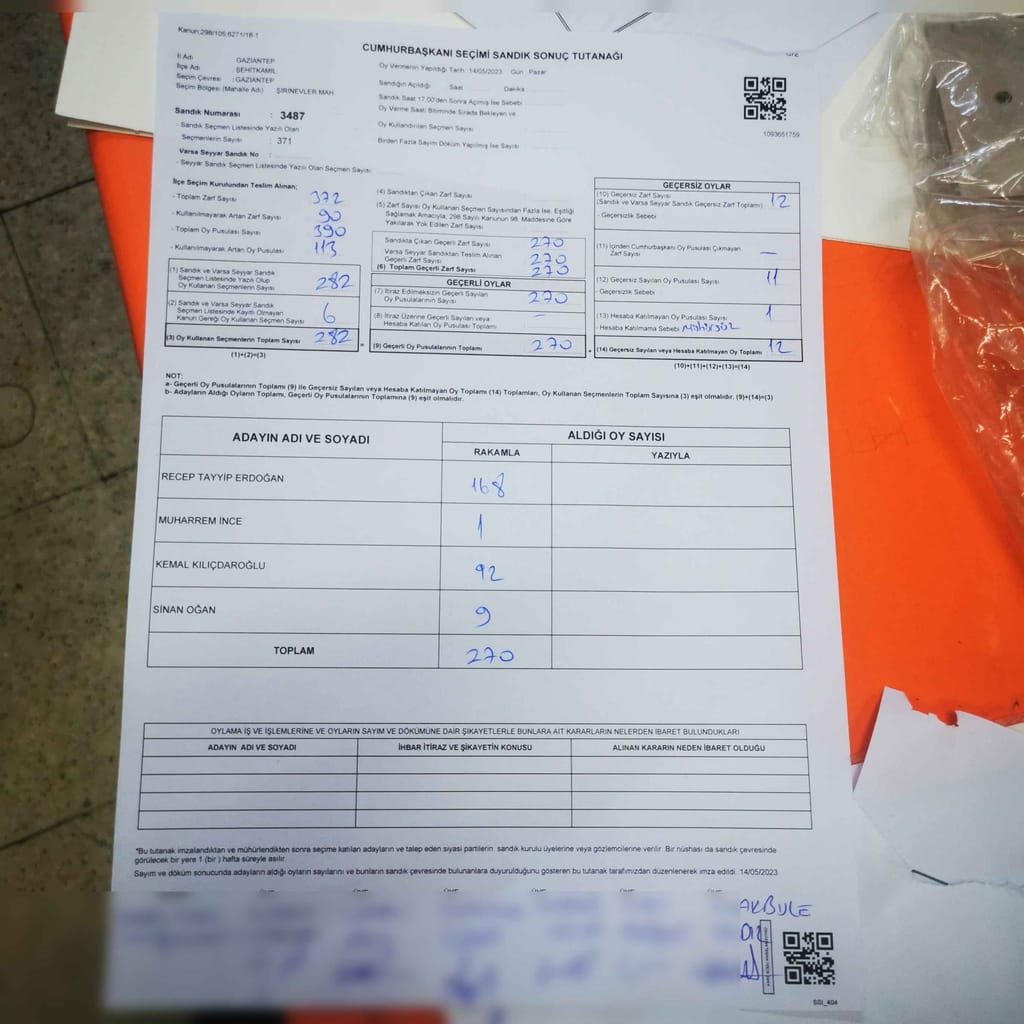 Kanun;298/105,6271/18-1
CUMHURBAŞKANI SEÇİMİ SANDIK SONUÇ TUTANAĞI
İl Adı GAZİANTEP
İlçe Adı ŞEHİTKAMİL
Seçim Çevresi : GAZİANTEP
Seçim Bölgesi (Mahalle Adı) ŞİRİNEVLER MAH.
Sandık Numarası : 3487
- Sandık Seçmen Listesinde Yazılı Olan
Seçmenlerin Sayısı : 371
Varsa Seyyar Sandık No :
- Seyyar Sandık Seçmen Listesinde Yazılı Olan Seçmen Sayısı
Oy Vermenin Yapıldığı Tarih: 14/05/2023 Gün : Pazar
Sandığın Açıldığı Saat Dakika
Sandık Saat 17.00'den Sonra Açılmış İse Sebebi
Oy Verme Saati Bitiminde Sırada Bekleyen ve
Oy Kullandırılan Seçmen Sayısı
Birden Fazla Sayım Döküm Yapılmış İse Sayısı
1093651759
İlçe Seçim Kurulundan Teslim Alınan;
- Toplam Zarf Sayısı 372
- Kullanılmayarak Artan Zarf Sayısı 90
- Toplam Oy Pusulası Sayısı 390
- Kullanılmayarak Artan Oy Pusulası 113
(1) Sandık ve Varsa Seyyar Sandık
Seçmen Listesinde Yazılı Olup
Oy Kullanan Seçmenlerin Sayısı 282
(2) Sandık ve Varsa Seyyar Sandık
Seçmen Listesinde Kayıtlı Olmayan
Kanun Gereği Oy Kullanan Seçmen Sayısı 6
(3) Oy Kullanan Seçmenlerin Toplam Sayısı 282
(1)+(2)=(3)
=
(4) Sandıktan Çıkan Zarf Sayısı
(5) Zarf Sayısı Oy Kullanan Seçmen Sayısından Fazla İse, Eşitliği
Sağlamak Amacıyla, 298 Sayılı Kanunun 98. Maddesine Göre
Yakılarak Yok Edilen Zarf Sayısı
Sandıkta Çıkan Geçerli Zarf Sayısı 270
Varsa Seyyar Sandıktan Teslim Alınan
Geçerli Zarf Sayısı 270
(6) Toplam Geçerli Zarf Sayısı 270
GEÇERLİ OYLAR
(7) İtiraz Edilmeksizin Geçerli Sayılan
Oy Pusulalarının Sayısı 270
(8) İtiraz Üzerine Geçerli Sayılan veya
Hesaba Katılan Oy Pusulası Toplamı –
(9) Geçerli Oy Pusulalarının Toplamı 270
+
GEÇERSİZ OYLAR
(10) Geçersiz Zarf Sayısı
(Sandık ve Varsa Seyyar Sandık Geçersiz Zarf Toplamı) 12
- Geçersizlik Sebebi
(11) İçinden Cumhurbaşkanı Oy Pusulası Çıkmayan
Zarf Sayısı –
(12) Geçersiz Sayılan Oy Pusulası Sayısı 11
- Geçersizlik Sebebi
(13) Hesaba Katılmayan Oy Pusulası Sayısı 1
- Hesaba Katılmama Sebebi Mühürsüz
(14) Geçersiz Sayılan veya Hesaba Katılmayan Oy Toplamı 12
(10)+(11)+(12)+(13)=(14)
NOT:
a- Geçerli Oy Pusulalarının Toplamı (9) ile Geçersiz Sayılan veya Hesaba Katılmayan Oy Toplamı (14) Toplamları, Oy Kullanan Seçmenlerin Toplam Sayısına (3) eşit olmalıdır. (9)+(14)=(3)
b- Adayların Aldığı Oyların Toplamı, Geçerli Oy Pusulalarının Toplamına (9) eşit olmalıdır.
ADAYIN ADI VE SOYADI ALDIĞI OY SAYISI
RAKAMLA YAZIYLA
RECEP TAYYİP ERDOĞAN 168
MUHARREM İNCE 1
KEMAL KILIÇDAROĞLU 92
SİNAN OĞAN 9
TOPLAM 270
OYLAMA İŞ VE İŞLEMLERİNE VE OYLARIN SAYIM VE DÖKÜMÜNE DAİR ŞİKAYETLERLE BUNLARA AİT KARARLARIN NELERDEN İBARET BULUNDUKLARI
ADAYIN ADI VE SOYADI İHBAR İTİRAZ VE ŞİKAYETİN KONUSU ALINAN KARARIN NEDEN İBARET OLDUĞU
*Bu tutanak imzalandıktan ve mühürlendikten sonra seçime katılan adayların ve talep eden siyasi partilerin sandık kurulu üyelerine veya gözlemcilerine verilir. Bir nüshası da sandık çevresinde
görülecek bir yere 1 (bir ) hafta süreyle asılır.
Sayım ve döküm sonucunda adayların aldığı oyların sayılarını ve bunların sandık çevresinde bulunanlara duyurulduğunu gösteren bu tutanak tarafımızdan düzenlenerek imza edildi. 14/05/2023
AKBULE
SSI_404